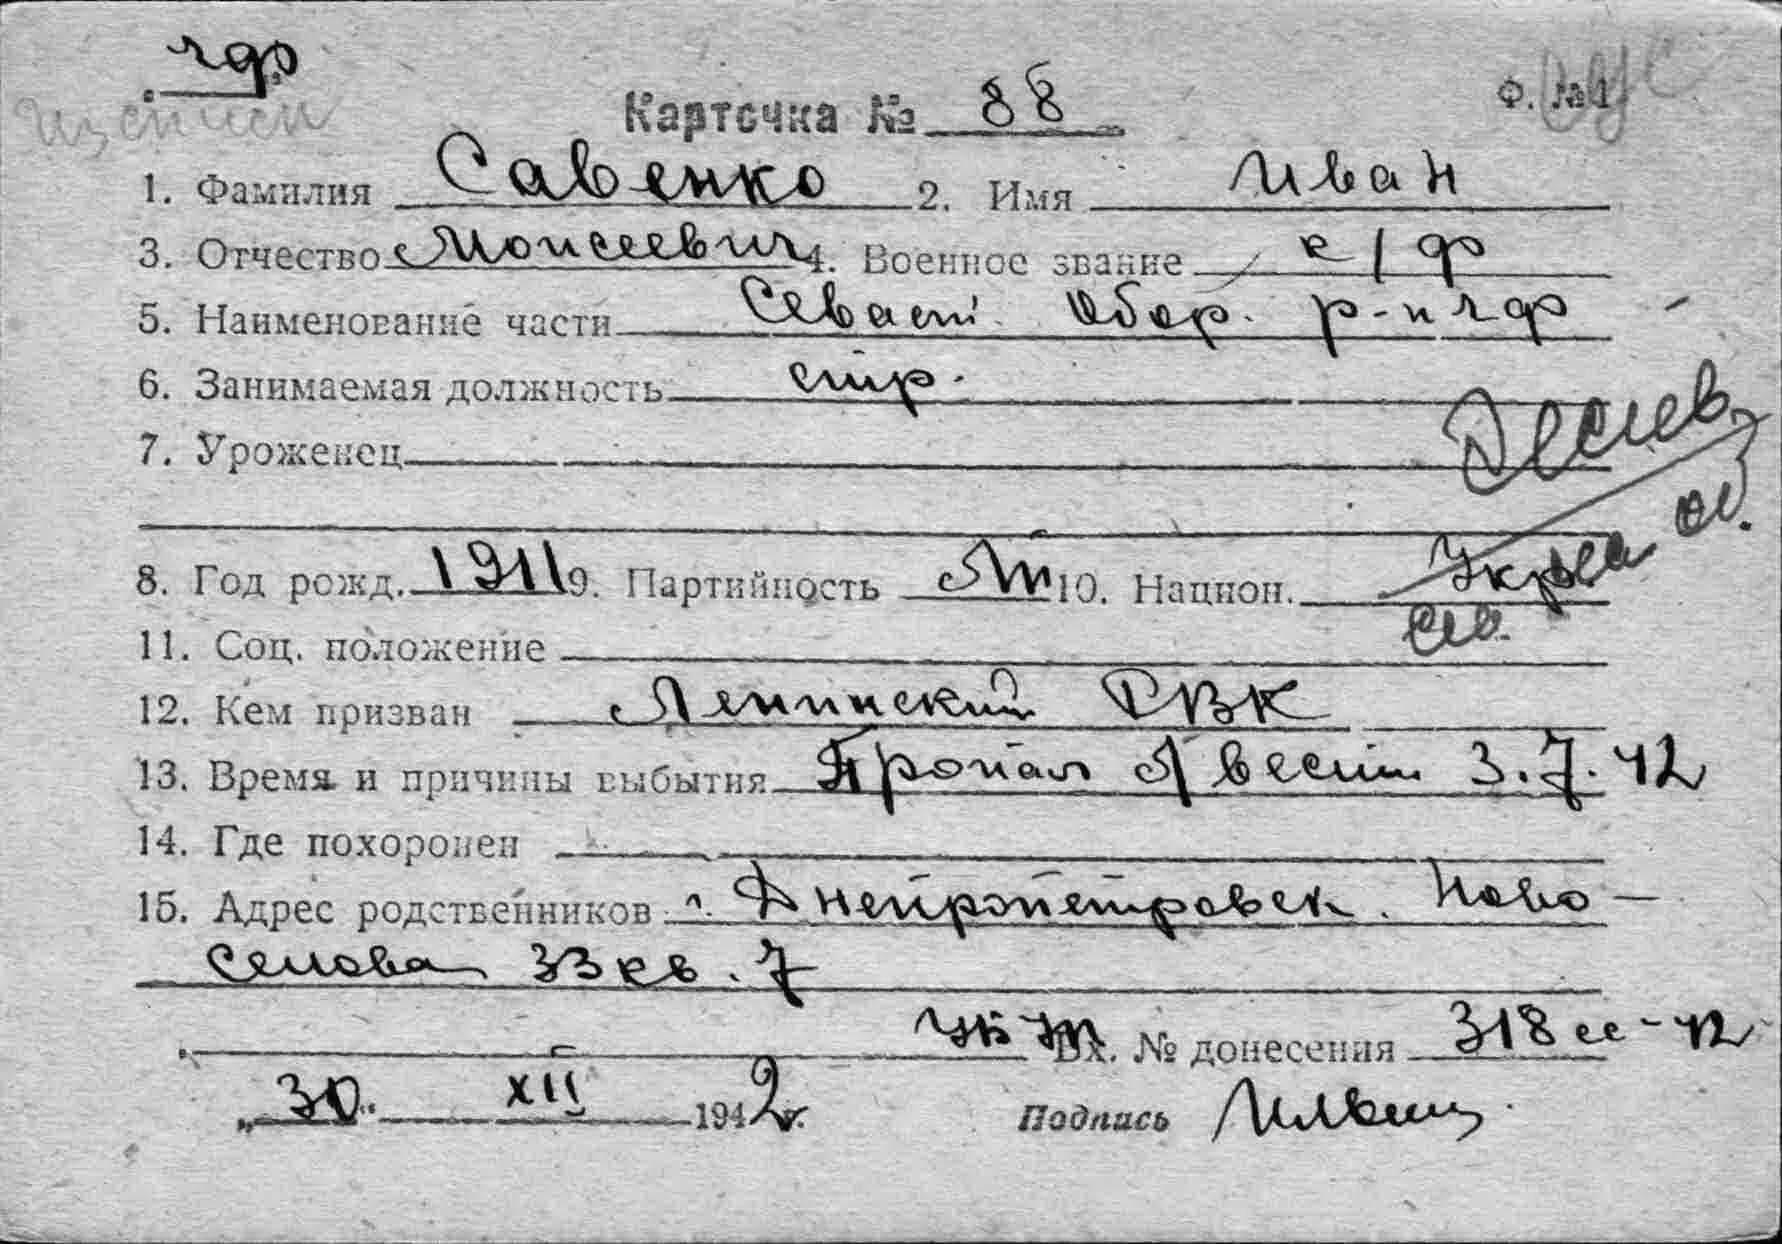 чф
из списк
Карточка № 88 Ф. № 1
1. Фамилия Савенко 2. Имя Иван
3. Отчество Моисеевич 4. Военное звание к/ф
5. Наименование части Севаст. Обор. р-н чф
6. Занимаемая должность стр.
7. Уроженец
8. Год рожд. 1911 9. Партийность 10. Национ.
11. Соц. положение
12. Кем призван Ленинский РВК
13. Время и причины выбытия Пропал б/вести 3.7.42
14. Где похоронен
15. Адрес родственников г. Днепропетровск. Ново-
селова 33 кв. 7
Вх. № донесения 318 сс-42
„30“ XII 1942 г. Подпись